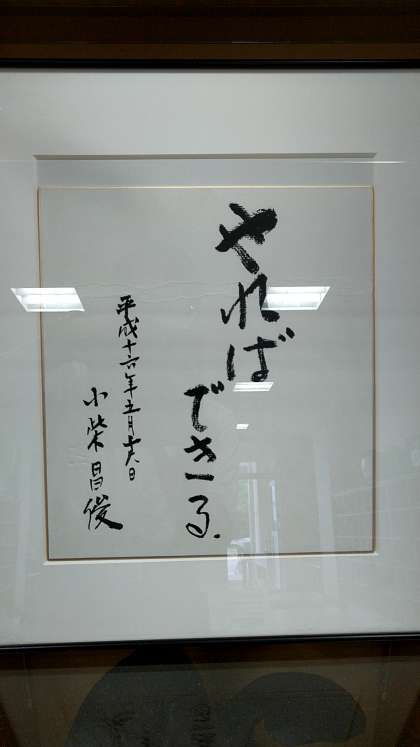 やれば
できる.
平成十六年五月十六日
小柴昌俊